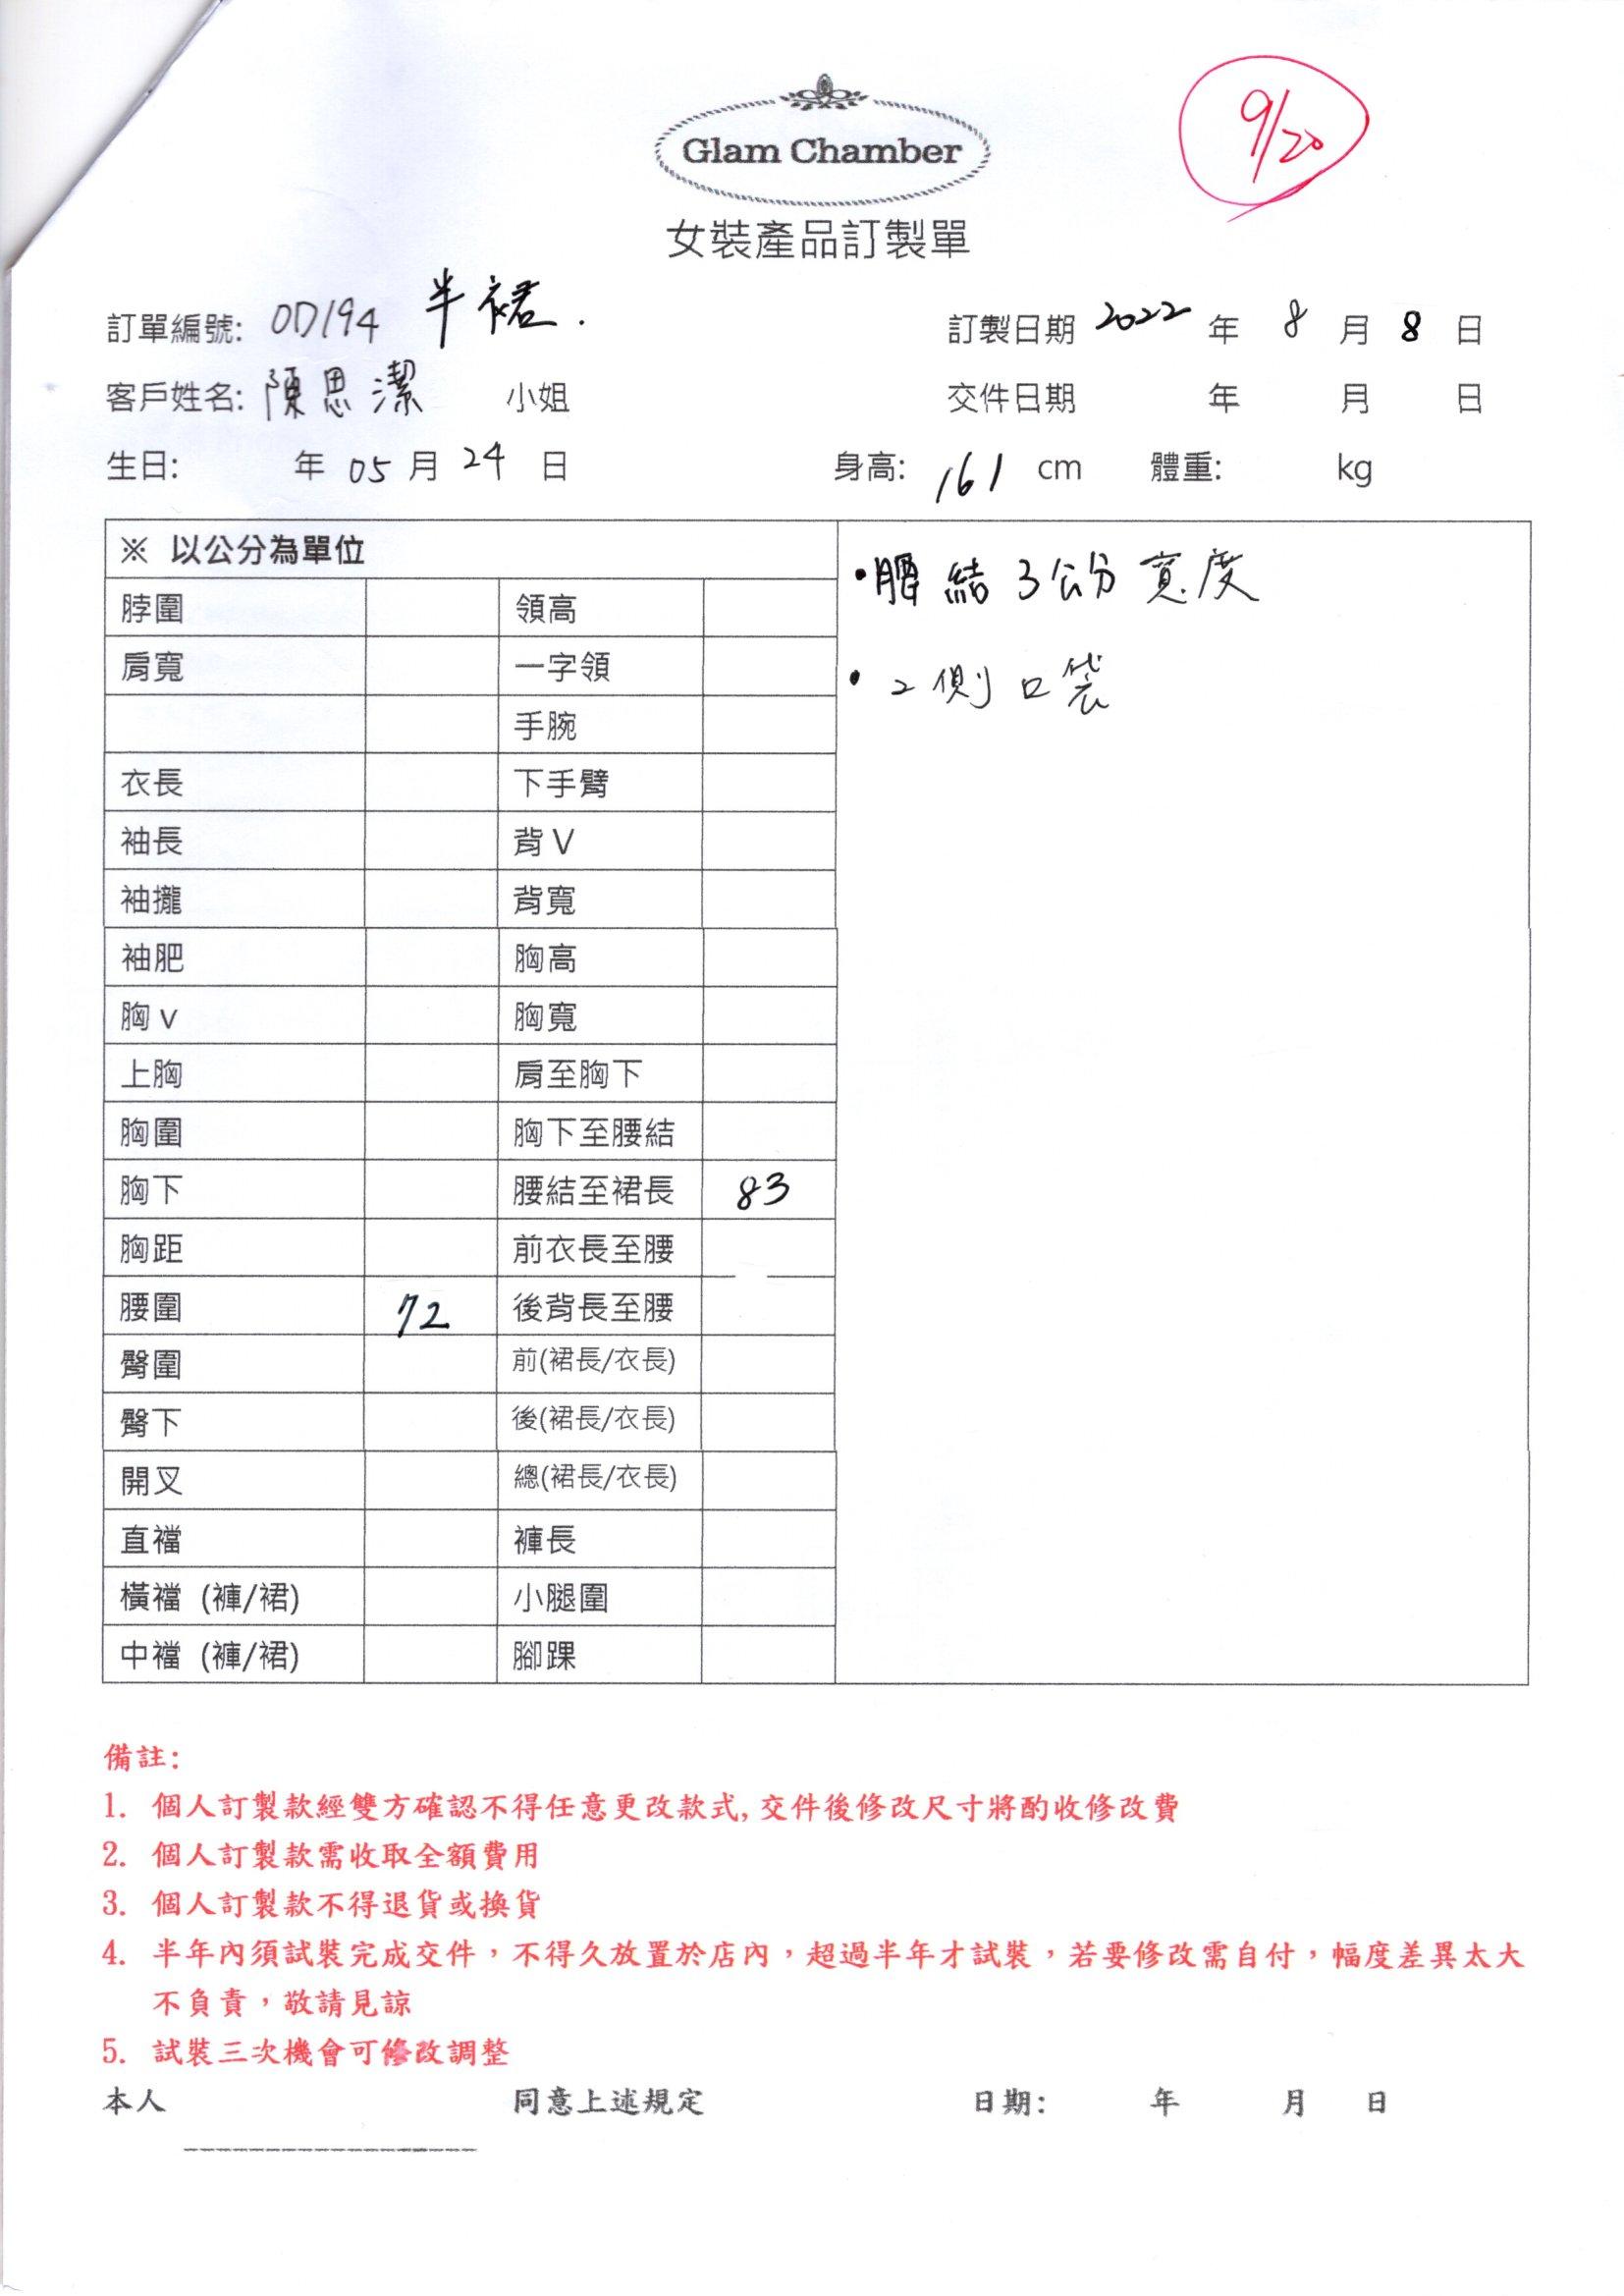 9/20
Glam Chamber
女裝產品訂製單
訂單編號: OD194 半裙.
訂製日期 2022 年 8 月 8 日
客戶姓名: 陳思潔 小姐
交件日期 年 月 日
生日: 年 05 月 24 日
身高: 161 cm 體重: kg
※ 以公分為單位
•腰結3公分寬度
• 2側口袋
脖圍 領高
肩寬 一字領
手腕
衣長 下手臂
袖長 背V
袖攏 背寬
袖肥 胸高
胸v 胸寬
上胸 肩至胸下
胸圍 胸下至腰結
胸下 腰結至裙長 83
胸距 前衣長至腰
腰圍 72 後背長至腰
臀圍 前(裙長/衣長)
臀下 後(裙長/衣長)
開叉 總(裙長/衣長)
直襠 褲長
橫襠 (褲/裙) 小腿圍
中襠 (褲/裙) 腳踝
備註:
1. 個人訂製款經雙方確認不得任意更改款式,交件後修改尺寸將酌收修改費
2. 個人訂製款需收取全額費用
3. 個人訂製款不得退貨或換貨
4. 半年內須試裝完成交件，不得久放置於店內，超過半年才試裝，若要修改需自付，幅度差異太大
不負責，敬請見諒
5. 試裝三次機會可修改調整
本人 同意上述規定 日期: 年 月 日